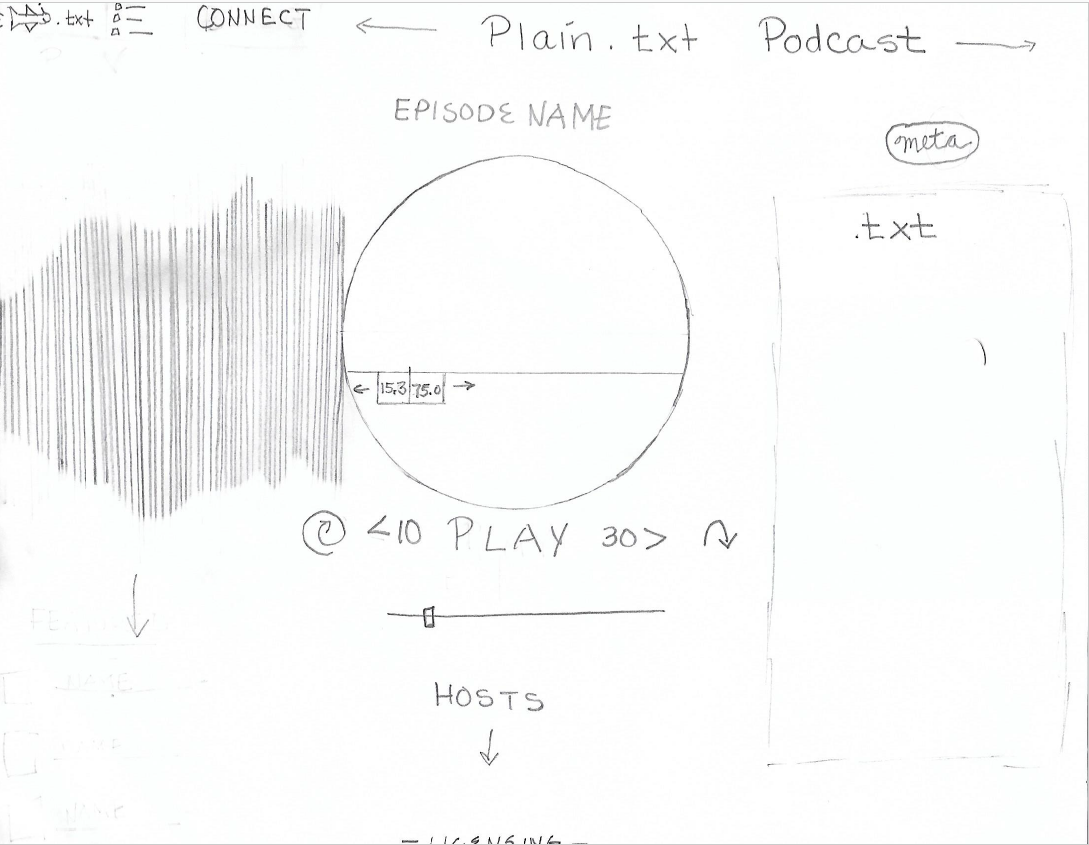 .txt
CONNECT
Plain.txt Podcast
EPISODE NAME
meta
.txt
15.3 75.0
<10 PLAY 30>
HOSTS
NAME
NAME
NAME
- LICENSING -